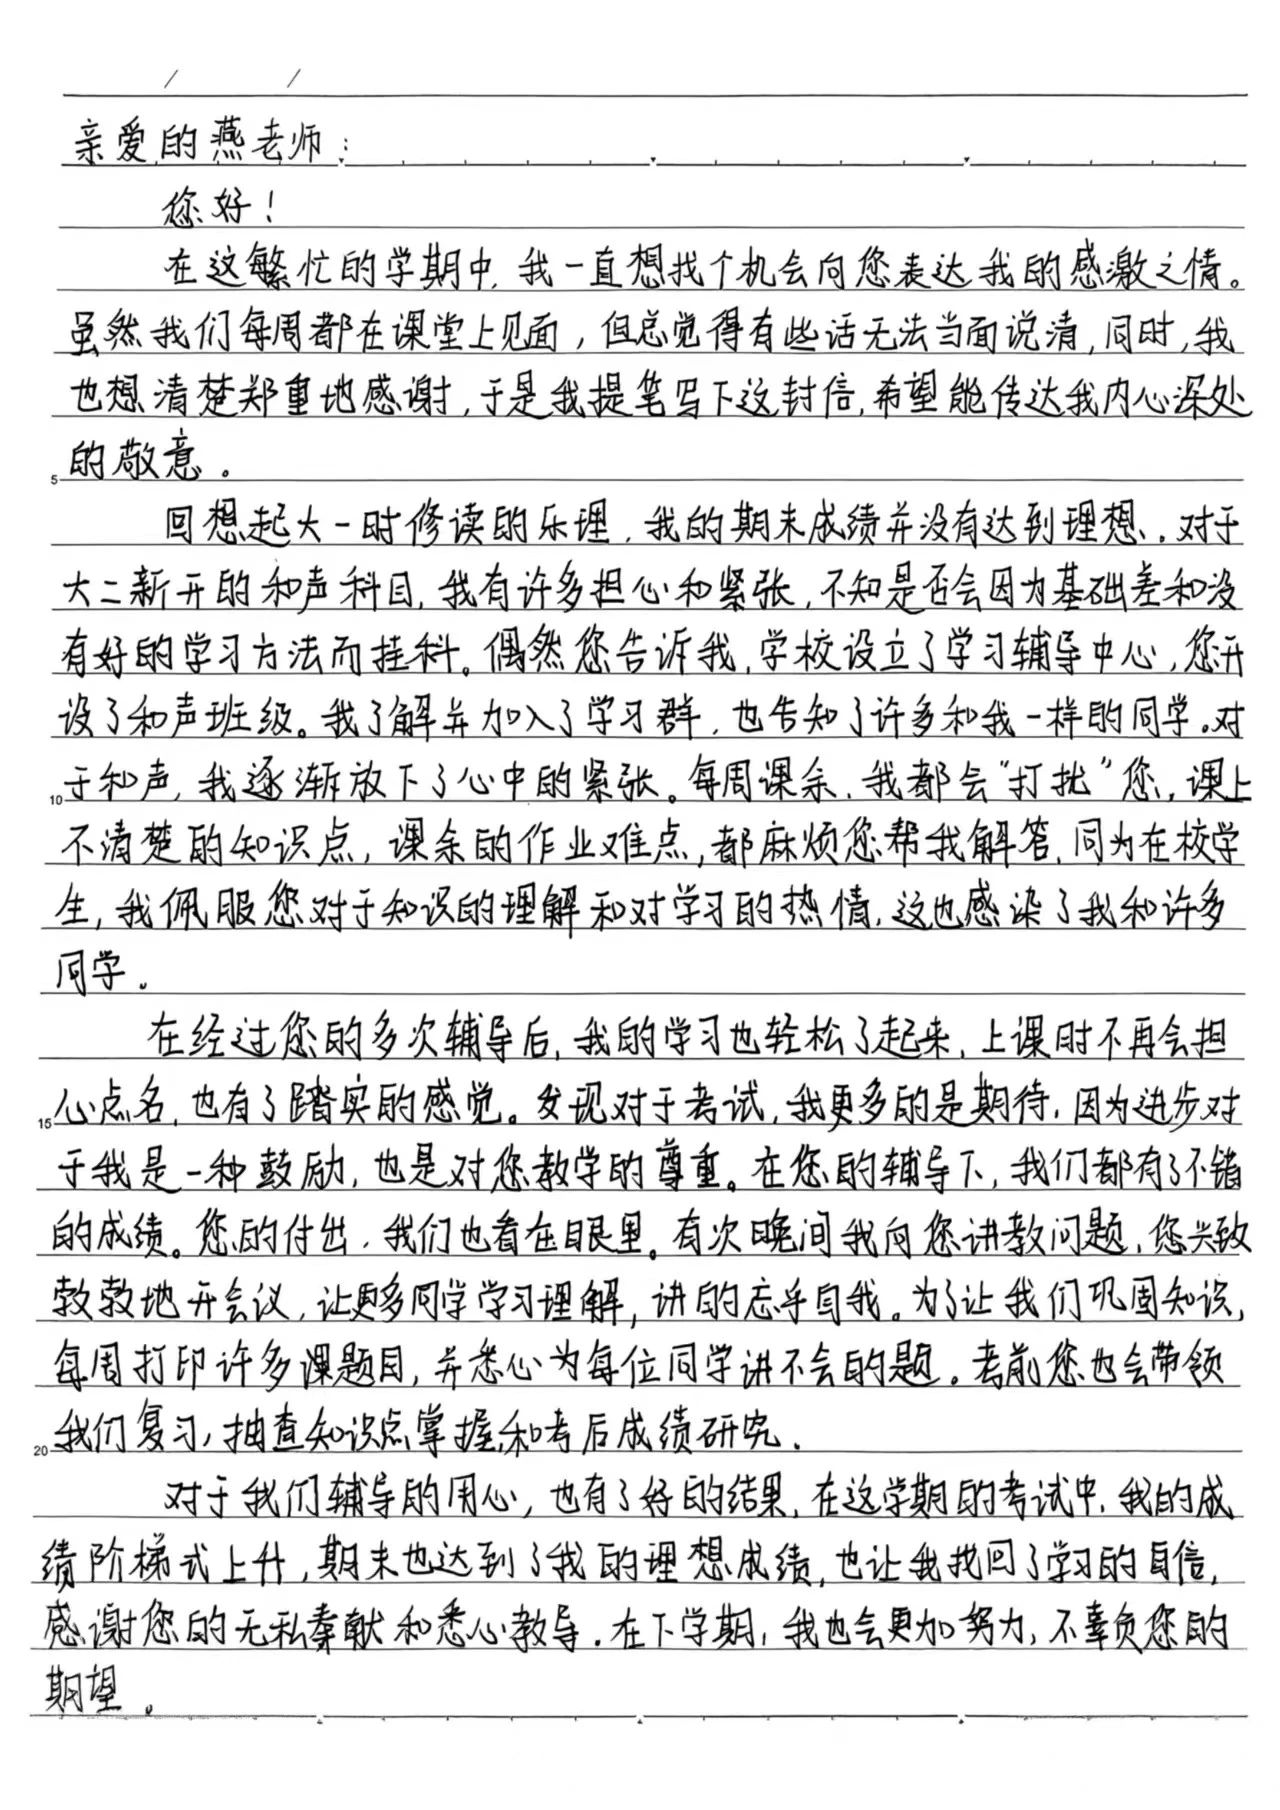 亲爱的燕老师：
您好！
在这繁忙的学期中，我一直想找个机会向您表达我的感激之情。
虽然我们每周都在课堂上见面，但总觉得有些话无法当面说清，同时，我
也想清楚郑重地感谢，于是我提笔写下这封信，希望能传达我内心深处
5 的敬意。
回想起大一时修读的乐理，我的期末成绩并没有达到理想。对于
大二新开的和声科目，我有许多担心和紧张，不知是否会因为基础差和没
有好的学习方法而挂科。偶然您告诉我，学校设立了学习辅导中心，您开
设了和声班级。我了解并加入了学习群，也告知了许多和我一样的同学。对
10 于和声，我逐渐放下了心中的紧张。每周课余，我都会“打扰”您，课上
不清楚的知识点，课余的作业难点，都麻烦您帮我解答，同为在校学
生，我佩服您对于知识的理解和对学习的热情，这也感染了我和许多
同学。
在经过您的多次辅导后，我的学习也轻松了起来，上课时不再会担
15 心点名，也有了踏实的感觉。发现对于考试，我更多的是期待，因为进步对
于我是一种鼓励，也是对您教学的尊重。在您的辅导下，我们都有了不错
的成绩。您的付出，我们也看在眼里。有次晚间我向您讲教问题，您兴致
勃勃地开会议，让更多同学学习理解，讲的忘乎自我。为了让我们巩固知识，
每周打印许多课题目，并悉心为每位同学讲不会的题。考前您也会带领
20 我们复习，抽查知识点掌握和考后成绩研究。
对于我们辅导的用心，也有了好的结果，在这学期的考试中，我的成
绩阶梯式上升，期末也达到了我的理想成绩，也让我找回了学习的自信，
感谢您的无私奉献和悉心教导。在下学期，我也会更加努力，不辜负您的
期望。